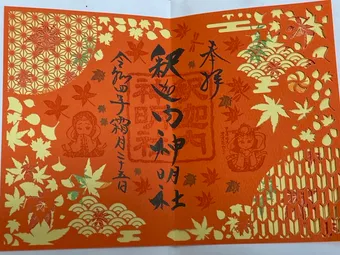 奉拝
釈迦内神明社
令和四年霜月二十五日